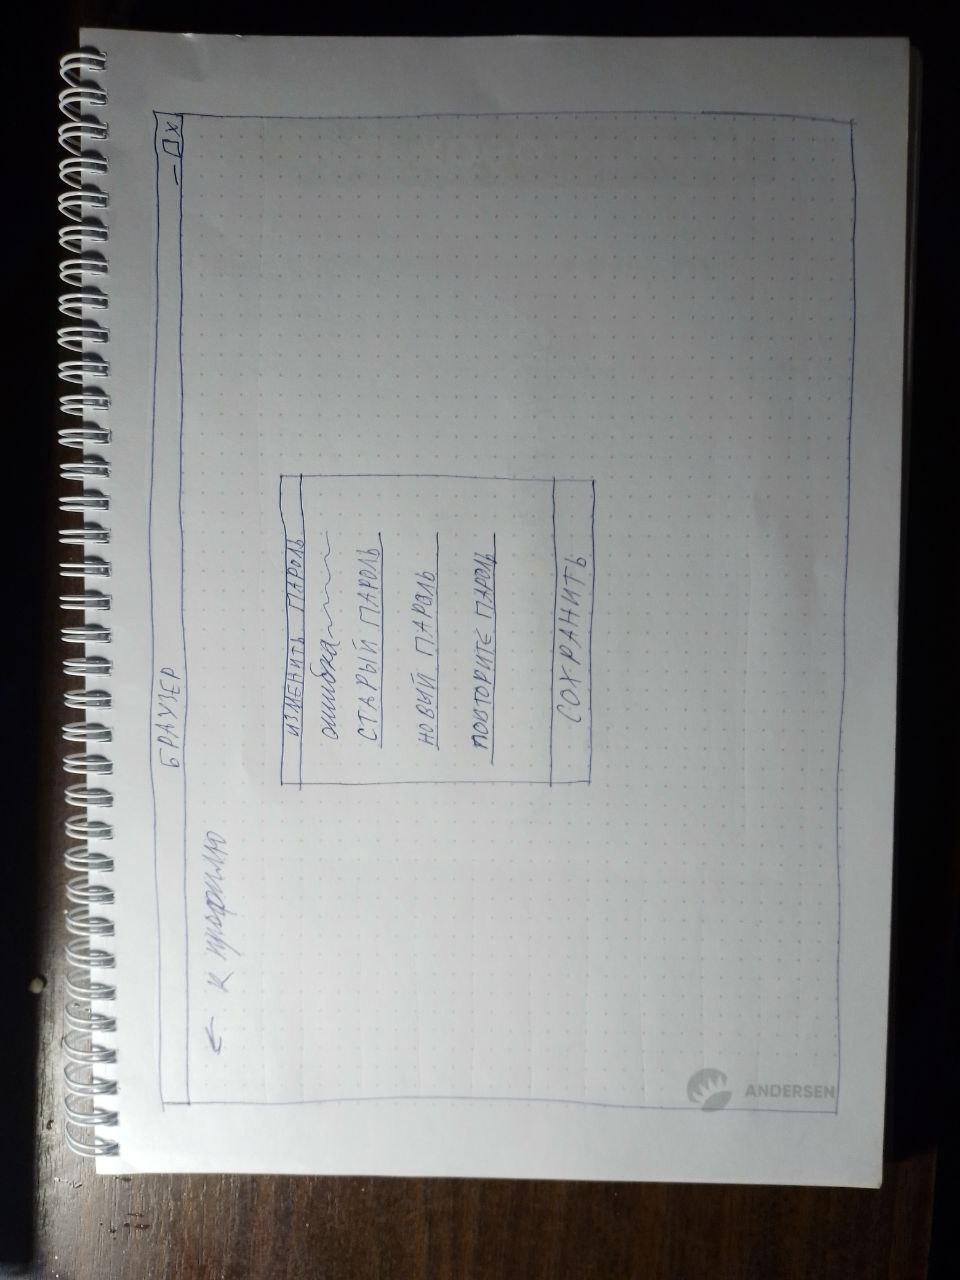 БРАУЗЕР
− □ X
← к профилю
ИЗМЕНИТЬ ПАРОЛЬ
ошибка
СТАРЫЙ ПАРОЛЬ
НОВЫЙ ПАРОЛЬ
ПОВТОРИТЕ ПАРОЛЬ
СОХРАНИТЬ
ANDERSEN